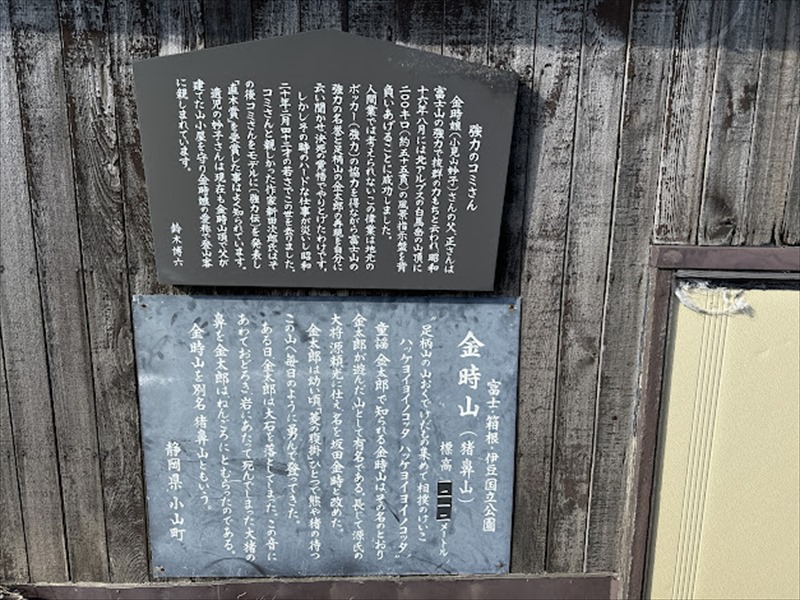 強力のコミさん
金時娘(小見山妙子)さんの父、正さんは
富士山の強力で抜群の力もちと云われ、昭和
十六年八月には北アルプスの白馬岳の山頂に
二〇〇キロ(約五十五貫)の風景指示盤を背
負いあげることに成功しました。
人間業では考えられないこの偉業は地元の
ボッカー(強力)の協力を得ながら富士山の
強力の名誉と足柄山の金太郎の再現を自分に
云い聞かせ、決死の覚悟でやりとげたわけです。
しかしその時のハードな仕事が災いし昭和
二十年二月四十二才の若さでこの世を去りました。
コミさんと親しかった作家新田次郎氏はそ
の後コミさんをモデルに「強力伝」を発表し
「直木賞」を受賞した事はよく知られています。
遺児の妙子さんは現在も金時山頂で父が
建てた山小屋を守り金時娘の愛称で登山客
に親しまれています。
鈴木博六
富士・箱根・伊豆国立公園
金時山(猪鼻山)
標高 一二一二メートル
足柄山の山おくでけだもの集めて相撲のけいこ
ハッケヨイヨイノコッタ ハッケヨイヨイノコッタ"
童謡 金太郎で知られる金時山は、その名のとおり
金太郎が遊んだ山として有名である。長じて源氏の
大将源頼光に仕え名を坂田金時と改めた。
金太郎は幼い頃、菱の腹掛ひとつで熊や猪の待つ
この山へ毎日のように勇んで登ってきた。
ある日金太郎は大石を落としてしまった。この音に
あわておどろき岩にあたって死んでしまった大猪の
鼻を金太郎は、ねんごろにともらったのである。
金時山を別名 猪鼻山ともいう。
静岡県 小山町